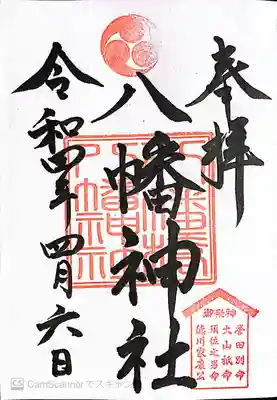 奉拝
八幡神社
令和四年四月六日
八幡神社
御祭神
誉田別命
大山祇命
須佐之男命
徳川家康公
CS CamScannerでスキャン